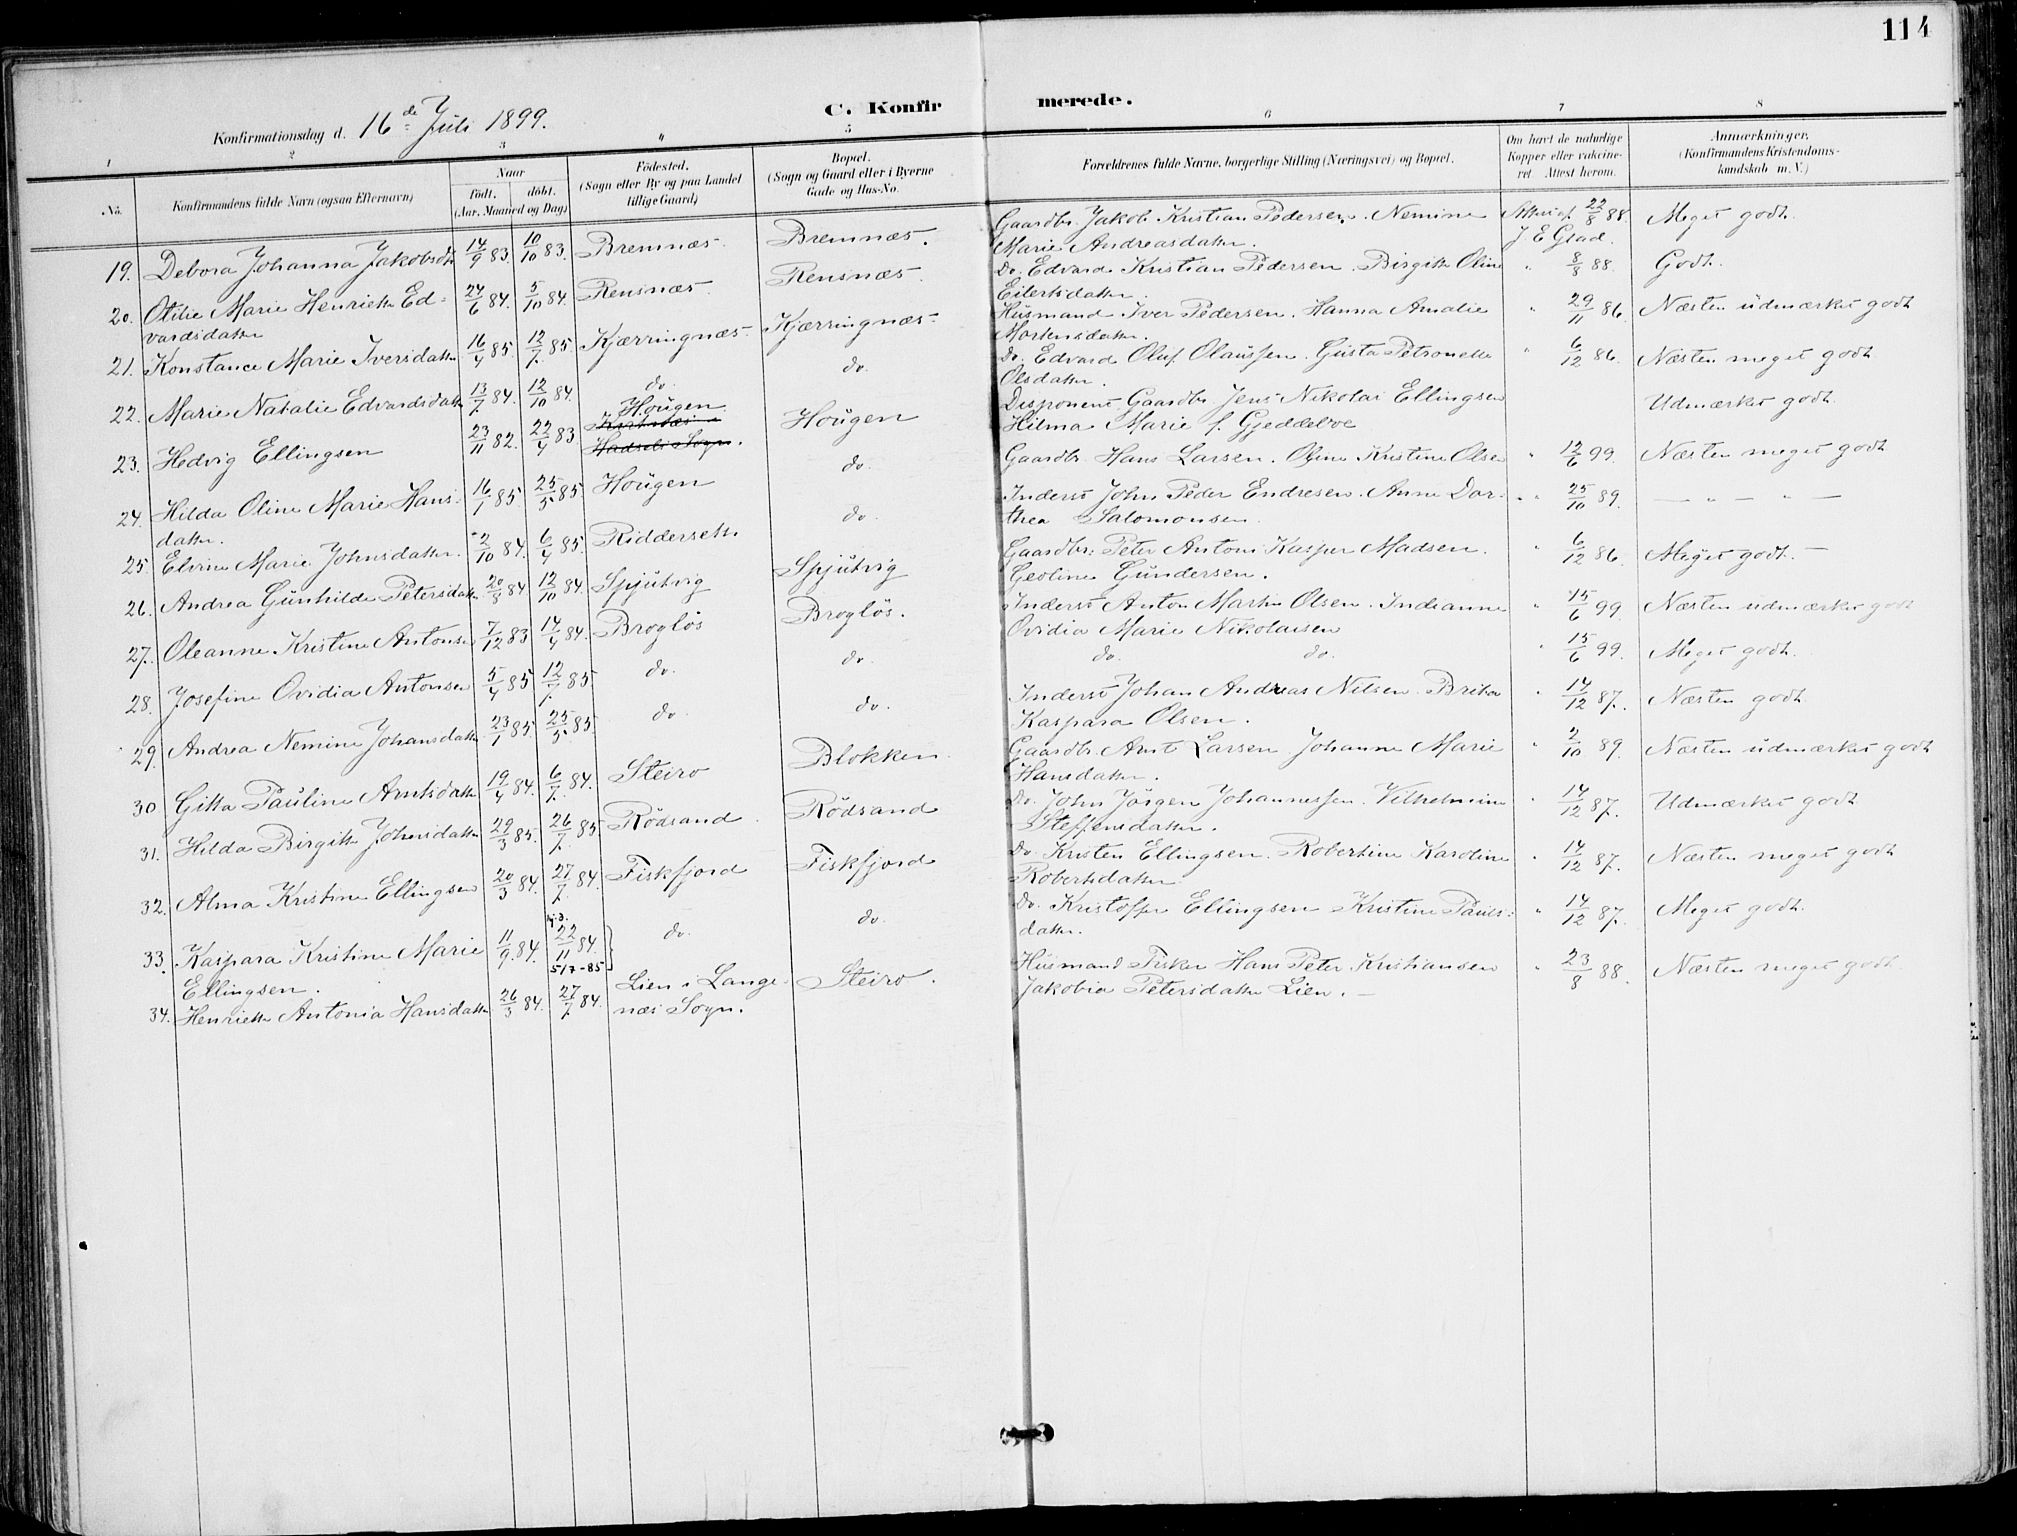 114
C. Konfirmerede.
Konfirmationsdag d. 16de Juli 1899.
1 2 3 4 5 6 7 8
No. Konfirmandens fulde Navn (ogsaa Efternavn)
Naar
født. døbt.
(Aar, Maaned og Dag)
Fødested.
(Sogn eller By og paa Landet
tillige Gaard)
Bopæl.
(Sogn og Gaard eller i Byerne
Gade og Hus-No.
Forældrenes fulde Navne, borgerlige Stilling (Næringsvei) og Bopæl.
Om havt de naturlige
Kopper eller vakcine-
ret. Attest herom.
Anmærkninger.
(Konfirmandens Kristendoms-
kundskab m.V.)
19. Debora Johanna Jakobsdtr 14/9 83. 10/10 83. Bremnæs. Bremnæs. Gaardbr. Jakob Kristian Pedersen. Nemine 22/8 88. Meget godt.
Marie Andreasdatter. J E Glad.
20. Otilie Marie Henriette Ed- 24/6 84. 5/10 84. Rensnæs. Rensnæs. Do. Edvard Kristian Pedersen. Birgitte Oline " 8/8 88. Godt.
vardsdatter Eilertsdatter.
21. Konstance Marie Iversdatter 16/4 85. 12/7 85. Kjærringnæs. Kjærringnæs. Husmand Iver Pedersen. Hanna Amalie " 29/11 86. Næsten udmærket godt
Mortensdatter.
22. Marie Natalie Edvardsdatter 13/7 84. 12/10 84. do. do. do. Edvard Oluf Olaussen. Gusta Petronelle " 6/12 86. Næsten meget godt
Olsdatter.
23. Hedvig Ellingsen 23/11 82. 22/4 83. Hougen Hadsels Sogn. Hougen Disponent Gaardbr. Jens Nikolai Ellingsen Udmærket godt.
Hilma Marie f. Gjeddebo
24. Hilda Oline Marie Hans- 16/1 85. 25/5 85. Hougen do. Gaardbr. Hans Larsen. Oline Kristine Olsen " 12/6 99. Næsten meget godt
datter.
25. Elvine Marie Johnsdatter. 2/10 84. 6/4 85. Riddersette do. Inderst John Peder Endresen. Anne Dor- " 25/10 89. — " — " —
thea Salomonsen.
26. Andrea Gunhilde Petersdatter 20/8 84 12/10 84. Spjutvig Spjutvig Gaardbr. Peter Antoni Kasper Madsen. " 6/12 86. Meget godt. —
Geoline Gundersen.
27. Oleanne Kristine Antonsen 7/12 83 14/4 84. Brogløs Brogløs. Inderst Anton Martin Olsen. Indianne " 15/6 99. Næsten udmærket godt
Ovidia Marie Nikolaisen
28. Josefine Ovidia Antonsen 5/4 85 12/7 85. do. do. do. do. " 15/6 99. Meget godt.
29. Andrea Nemine Johansdatter 23/1 85. 25/5 85 do. do. Inderst Johan Andreas Nilsen. Brita " 14/12 87. Næsten godt.
Kaspara Olsen.
30 Gitta Pauline Arntsdatter 19/4 84. 6/7 84. Steiro Blokken. Gaardbr. Arnt Larsen Johanne Marie " 2/10 89. Næsten udmærket godt
Hansdatter.
31. Hilda Birgitte Johnsdatter 29/3 85. 26/7 85 Rödsand. Rödsand Do. John Jørgen Johannessen. Vilhelmine " 14/12 87. Udmærket godt
Steffensdatter.
32. Alma Kristine Ellingsen 20/3 84. 27/7 84. Fiskfjord Fiskfjord Do. Kristen Ellingsen. Robertine Karoline " 14/12 87. Næsten meget godt
Robertsdatter
33. Kaspara Kristine Marie 11/9 84. hj.d. 22/11 84 do. do. Do. Kristoffer Ellingsen Kristine Pauls- " 14/12 87. Meget godt.
Ellingsen. 5/7-85 datter.
34. Henriette Antonia Hansdatter 26/3 84. 27/7 84. Lien i Lange- Steiro. Husmand Fisker Hans Peter Kristiansen " 23/8 88. Næsten meget godt.
næs Sogn. Jakobia Petersdatter Lien. —